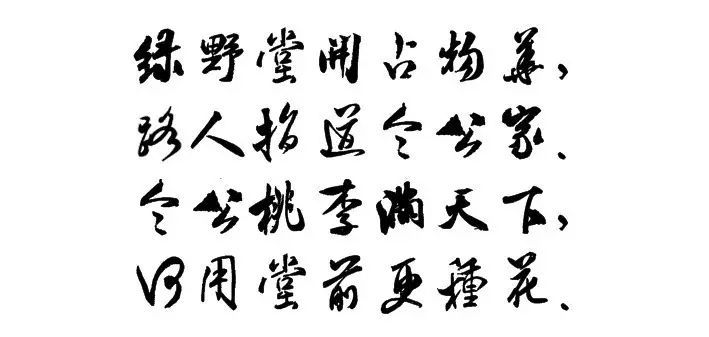 绿野堂開占物華,
路人指道令公家.
令公桃李滿天下,
何用堂前更種花.